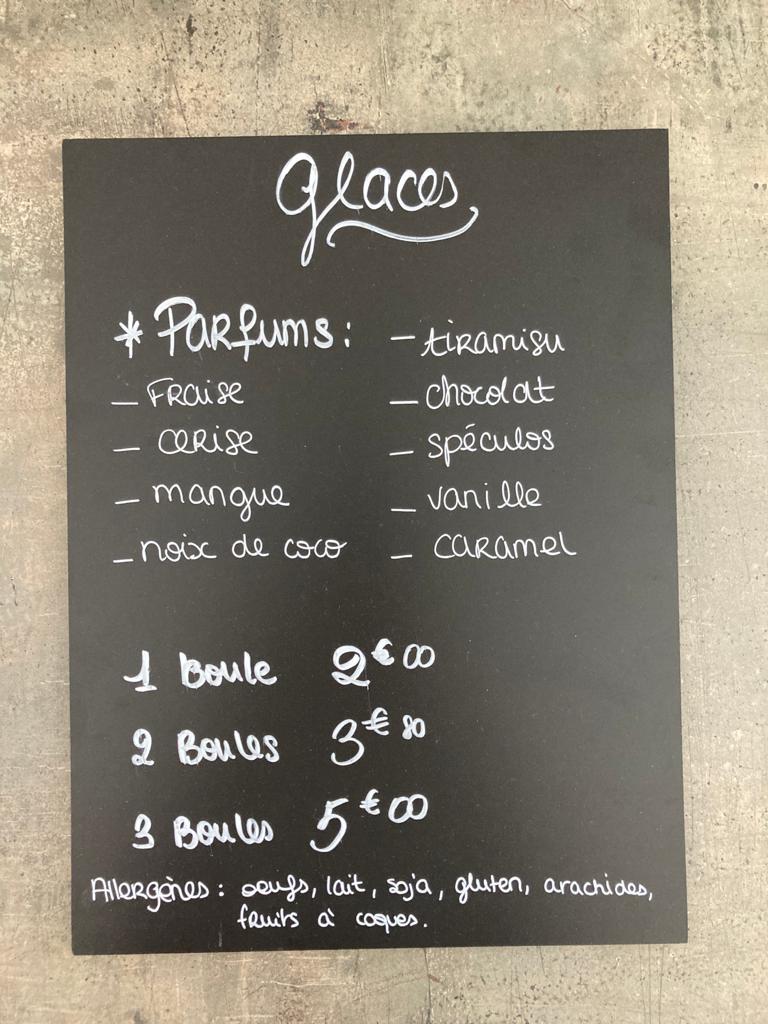 Glaces
* Parfums :
- Fraise
- cerise
- mangue
- noix de coco
- tiramisu
- chocolat
- spéculos
- vanille
- caramel
1 Boule 2€00
2 Boules 3€80
3 Boules 5€00
Allergènes : oeufs, lait, soja, gluten, arachides,
fruits à coques.